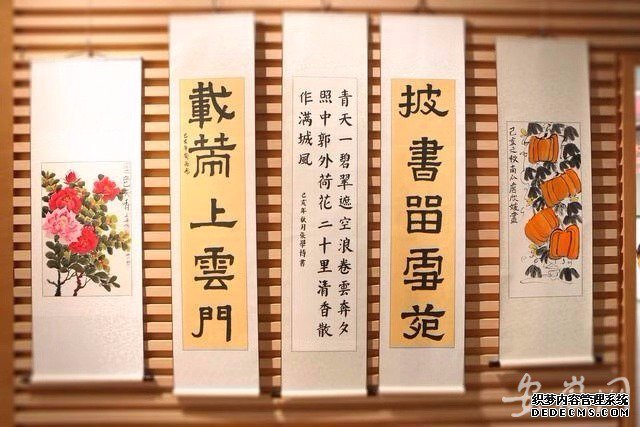 己亥之秋南瓜
披書留雪苑
青天一碧翠遮空浪卷雲奔夕
照中郭外荷花二十里清香散
作滿城風
己亥年秋月張學博書
載帶上雲門
织梦内容管理系统
DEDECMS.COM